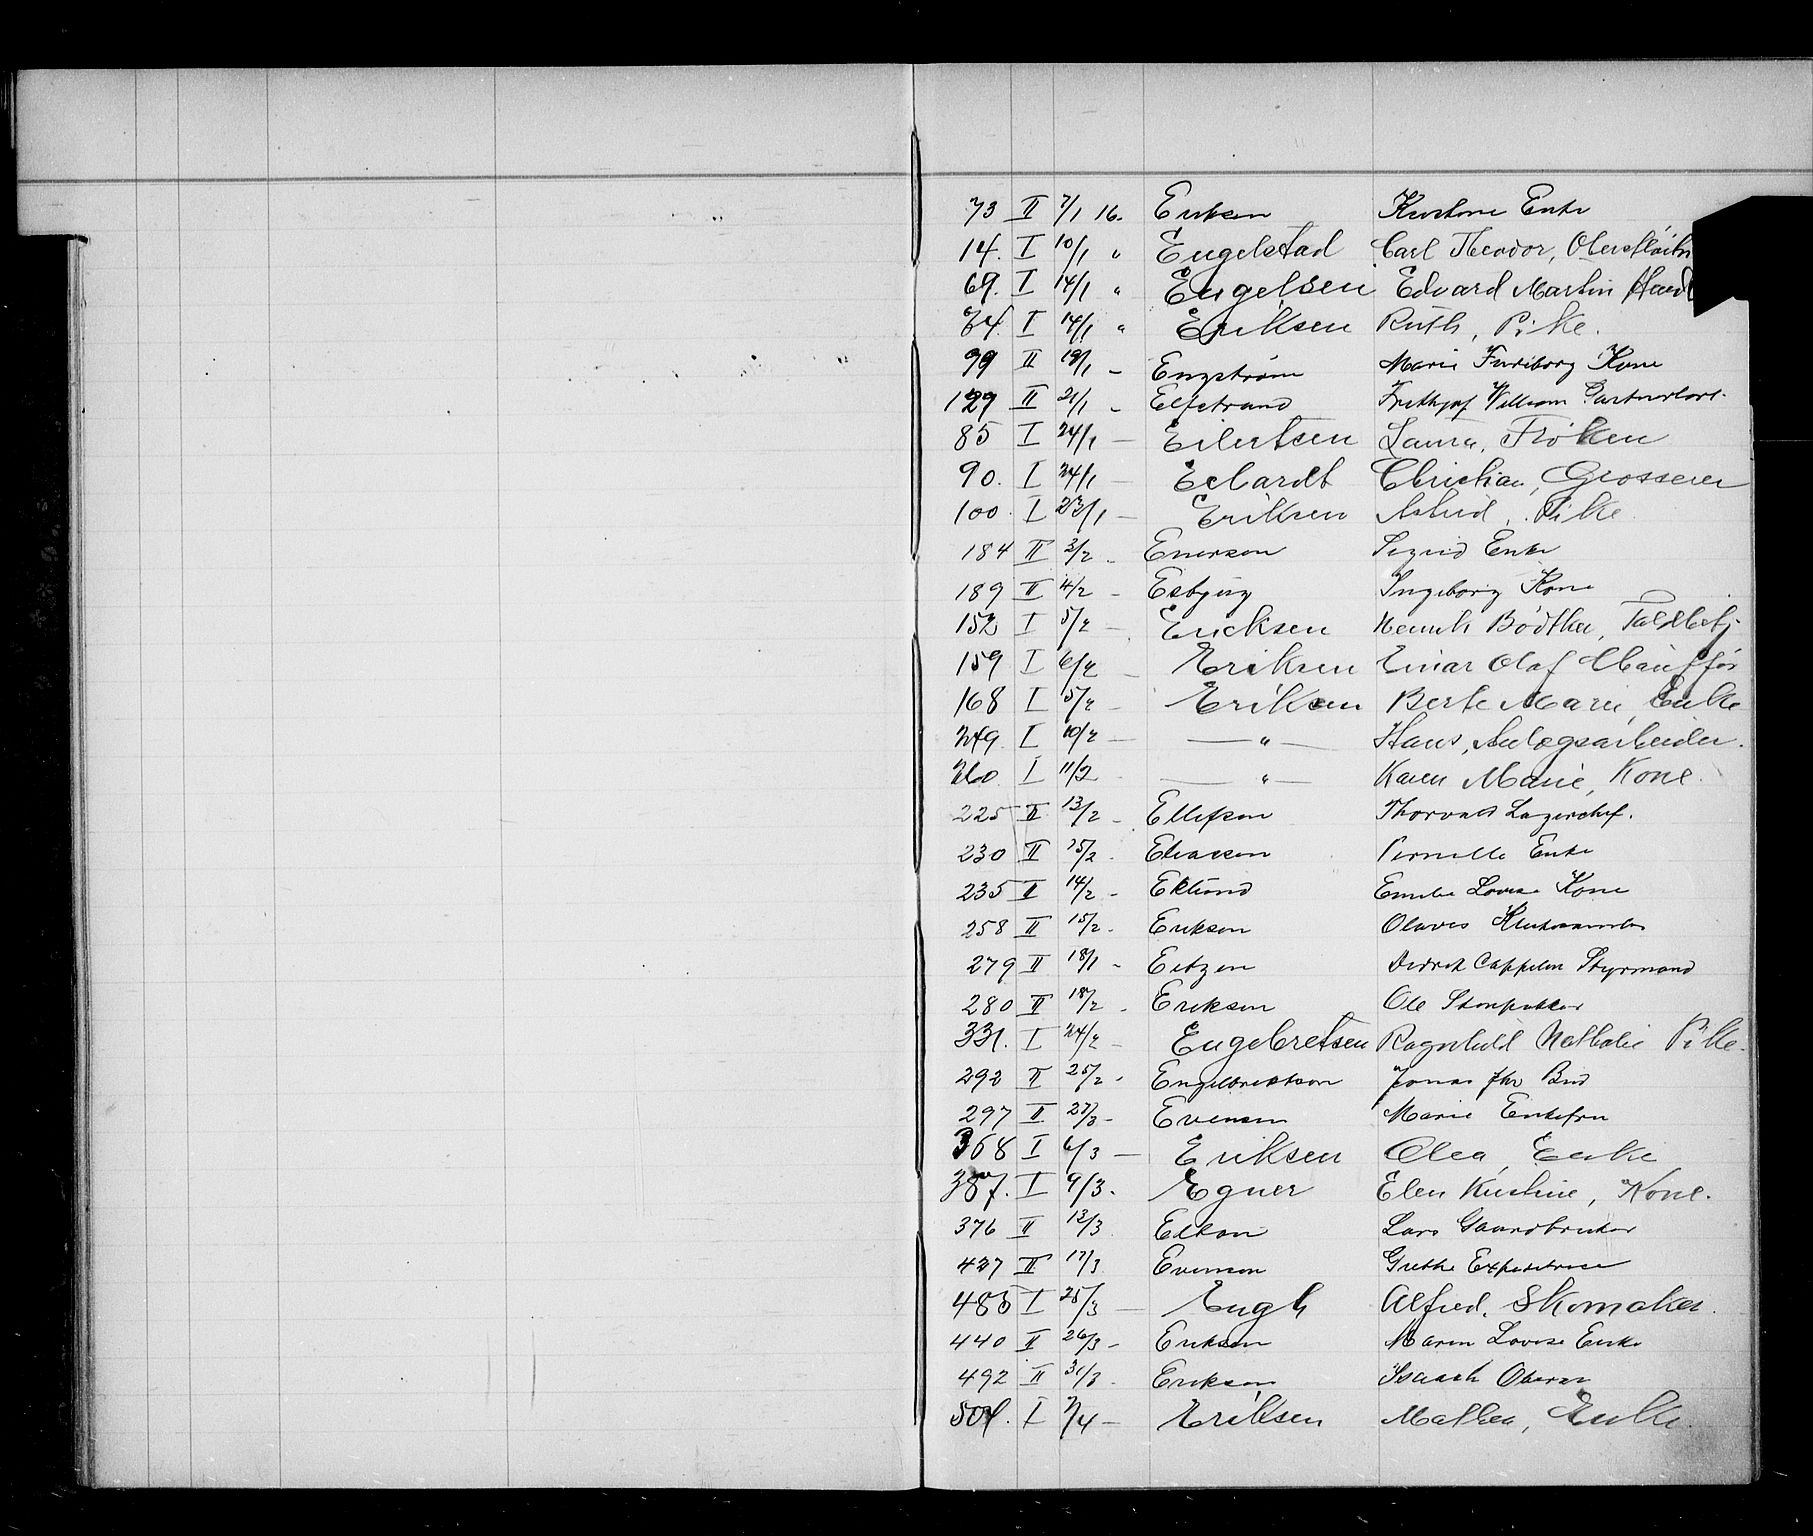 73 II 7/1 16. Eriksen Kirstine Enke
14. I 10/1 " Engelstad Carl Theodor, Oberstløitn
69. I 14/1 " Engelsen Edvard Martin
74. I 14/1 " Eriksen Ruth, Pike.
99 II 19/1 - Engstrøm Marie Kone
129 II 21/1 - Elfstrand Frithjof William
85 I 24/1 - Eilertsen Laura, Frøken
90. I 24/1 - Eckardt Christian, Grosserer
100. I 23/1 - Eriksen Astrid, Pike
184 II 3/2 - Enersen Sigrid Enke
189 II 4/2 - Esbjug Ingeborg Kone
152 I 5/2 - Ericksen Henrik Bødtker, Toldbetj.
159 I 6/2 - Eriksen Einar Olaf Chauffør
168 I 5/2 - Eriksen Berte Marie, Enke
249 I 10/2 - — " — Hans, Anlægsarbeider.
260 I 11/2 — " — Karen Marie, Kone.
225 II 13/2 - Ellefsen Thorvald Lagerchef.
230 II 15/2 - Eliassen Pernille Enke
235 II 14/2 - Eklund Emilie Lovise Kone
258 II 15/2 - Eriksen Olaves
279 II 18/1 - Eitzen Didrik Cappelen Styrmand
280 II 18/2 - Eriksen Ole
331. I 24/2 - Engebretsen Ragnhild Nathalie Pike.
292 II 25/2 - Engelbrektson Jonas Bud
297 II 27/3 - Evensen Marie Enkefru
368 I 6/3 - Eriksen Olea, Enke
387. I 9/3. Egner Elen Kristine, Kone.
376 II 13/3 Elton Lars Gaardbruker
427 II 17/3 Evensen Grethe Expeditrice
485 I 25/3 - Engh Alfred, Skomaker.
440 II 26/3 - Eriksen Maren Lovise Enke
492 II 31/3 - Eriksen Isaach
504. I 2/4 - Eriksen Mathea, Enke